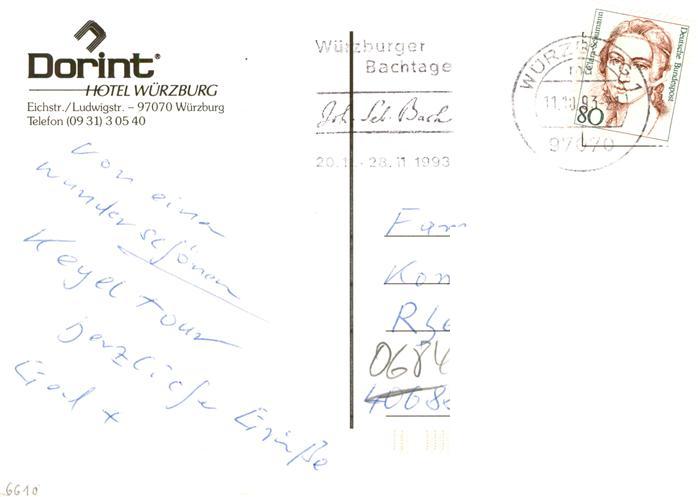 Dorint®
HOTEL WÜRZBURG
Eichstr./Ludwigstr. – 97070 Würzburg
Telefon (09 31) 3 05 40
Von einer
wunderschönen
Kegeltour
herzliche Grüße
Würzburger
Bachtage
Joh. Seb. Bach
20.11 - 28.11 1993
WÜRZBURG 1
11.10.93
97070
Clara Schumann
Deutsche Bundespost
80
Fam
Kon
Rhe
0684
4068
6610